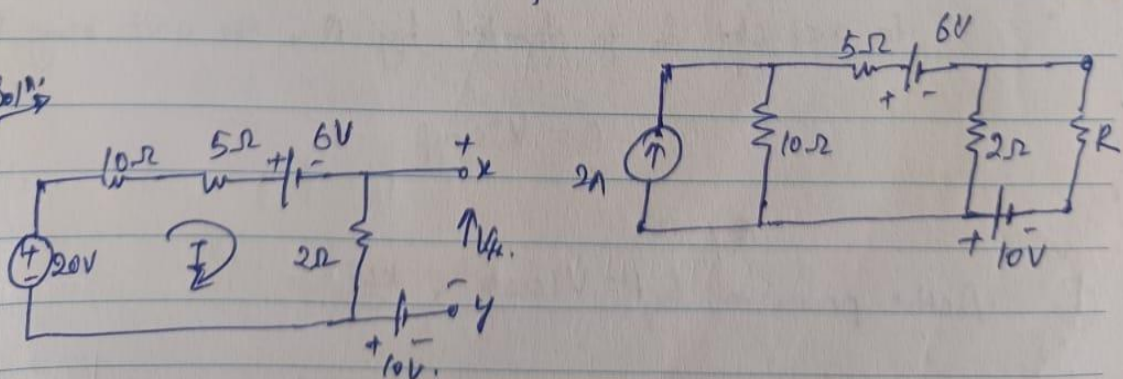 Soln:
10Ω 5Ω + 6V -
20V + -
I
2Ω
+ x
Vth.
- y
+ -
10V.
5Ω 6V
+ -
2A
10Ω
2Ω
R
+ -
10V